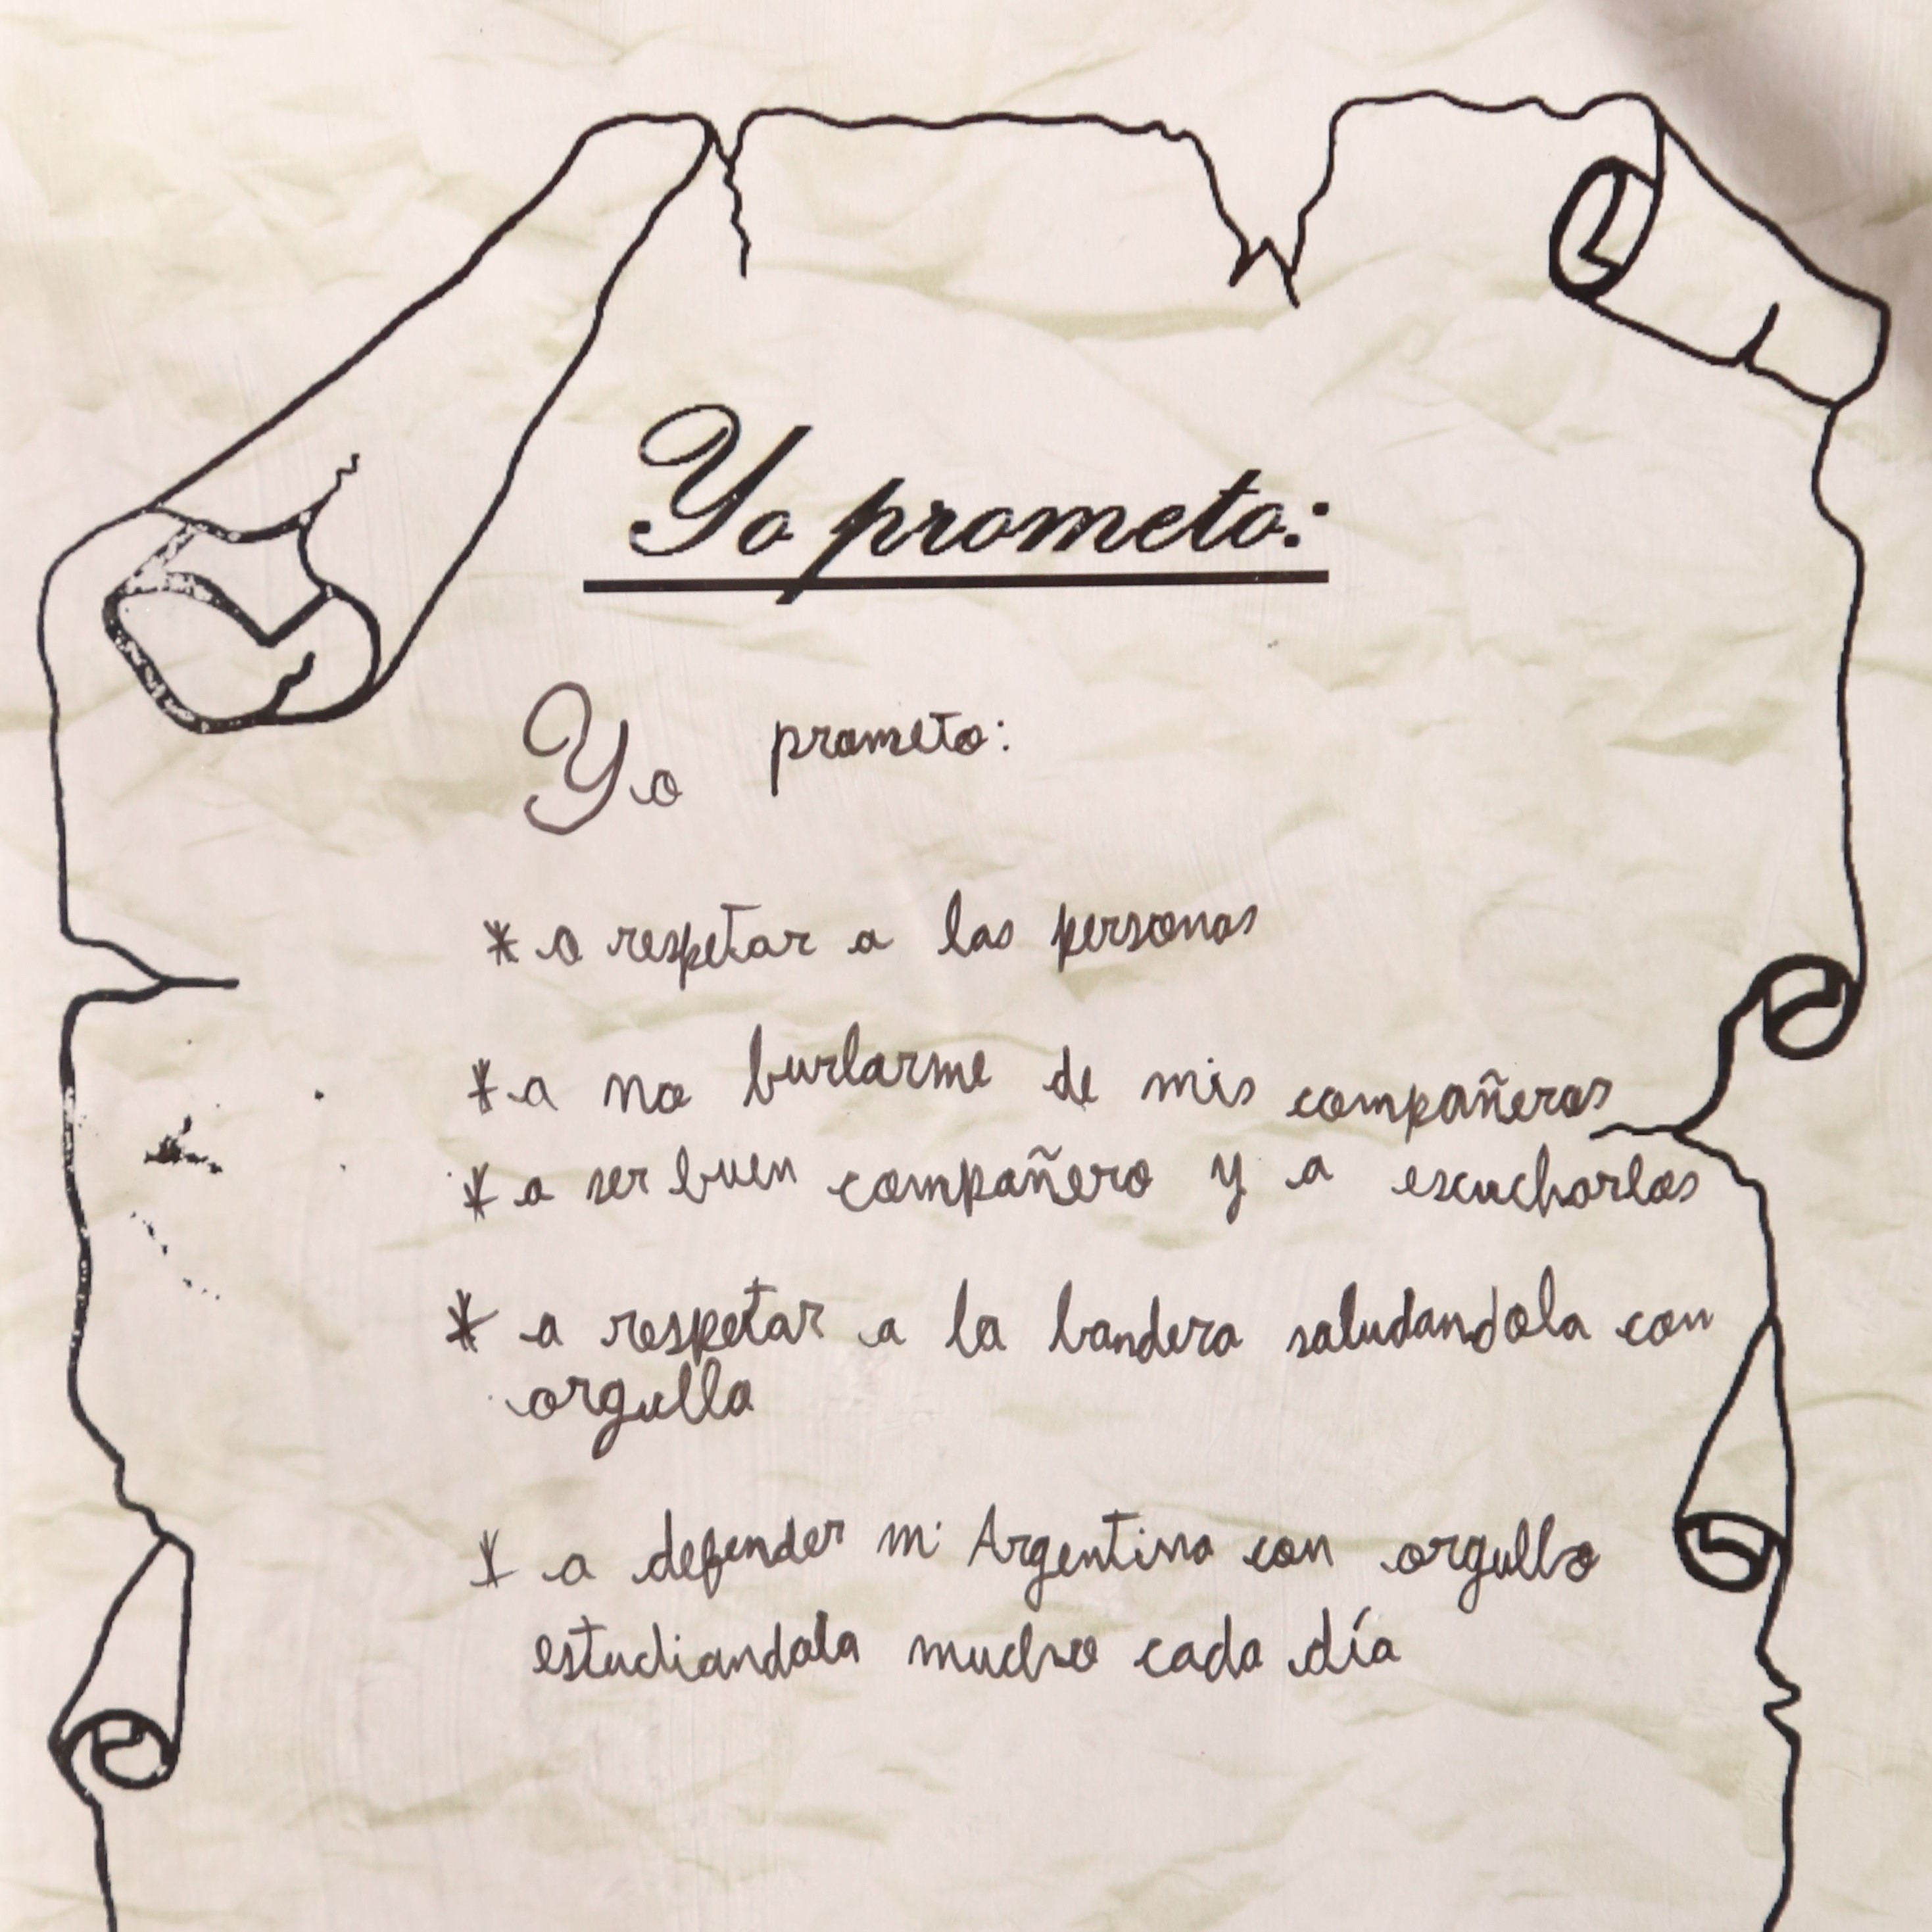 Yo prometo:
Yo prometo:
* a respetar a las personas
* a no burlarme de mis compañeros
* a ser buen compañero y a escucharlos
* a respetar a la bandera saludandola con
orgullo
* a defender mi Argentina con orgullo
estudiandola mucho cada día